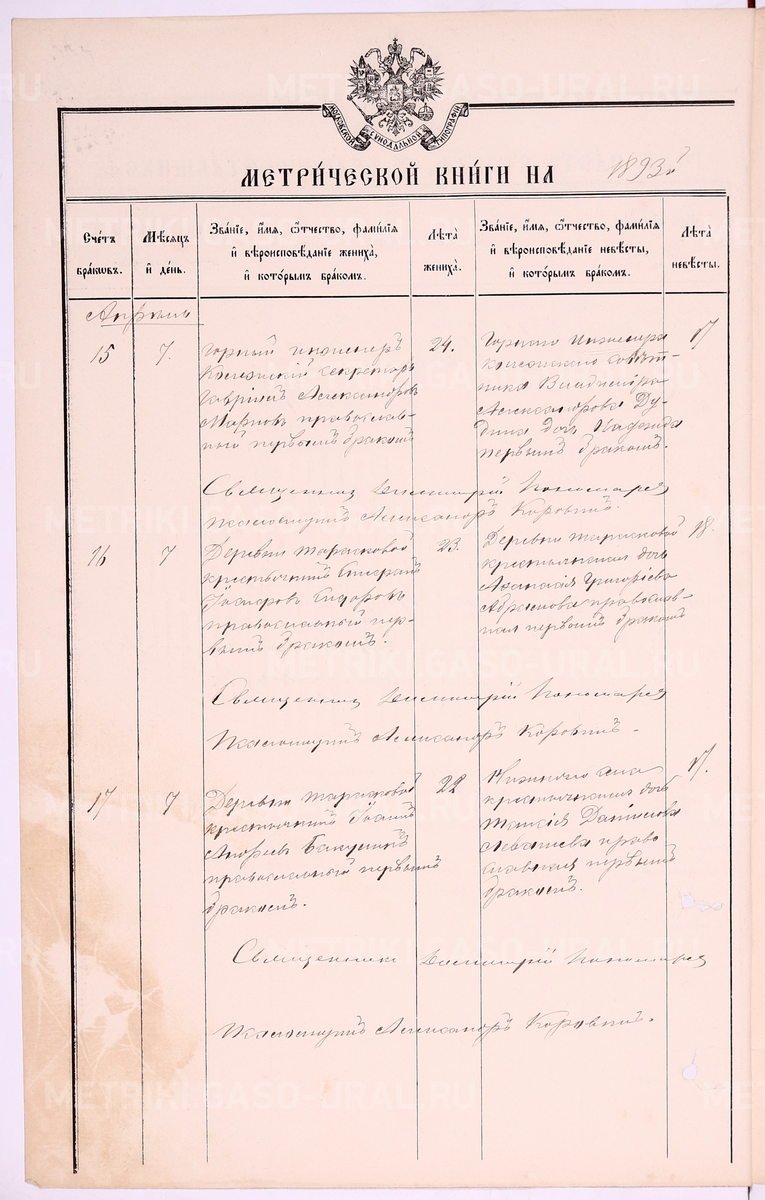 МОСКОВСКОЙ СУНОДАЛЬНОЙ ТИПОГРАФІИ
МЕТРИ́ЧЕСКОЙ КНИ́ГИ НА 1893 й
Сче́тъ бра́ковъ.
Мѣ́сяцъ и́ де́нь.
Зва́ніе, и́мя, ѻ҆́тчество, фами́лія и҆ вѣроисповѣ́даніе жениха̀, и҆ кото́рымъ бра́комъ.
Лѣта̀ жениха̀.
Зва́ніе, и́мя, ѻ҆́тчество, фами́лія и҆ вѣроисповѣ́даніе невѣ́сты, и҆ кото́рымъ бра́комъ.
Лѣта̀ невѣ́сты.
Апрѣль
15
7.
Горный инженеръ
Коллежскій секретарь
Гавріилъ Александровъ
Марковъ православ-
ный первымъ бракомъ
24.
Горнаго Инженера
коллежскаго совѣт-
ника Владиміра
Александрова Ду-
дина дочь
первымъ бракомъ.
17
Священникъ Димитрій Пономаревъ
Псаломщикъ Александръ Коровинъ.
16
7
Деревни Тарасковой
крестьянинъ
Сидоровъ
православный пер-
вымъ бракомъ.
23.
Деревни Тарасковой
крестьянская дочь
Григоріева
Абрамова православ-
ная первымъ бракомъ
18.
Священникъ Димитрій Пономаревъ
Псаломщикъ Александръ Коровинъ.
17
7
Деревни Тарасковой
крестьянинъ Іоаннъ
Андреевъ
православный первымъ
бракомъ.
22
села
крестьянская дочь
Таисія Данилова
право
славная первымъ
бракомъ.
17.
Священникъ Димитрій Пономаревъ
Псаломщикъ Александръ Коровинъ.
METRIKI.GASO-URAL.RU